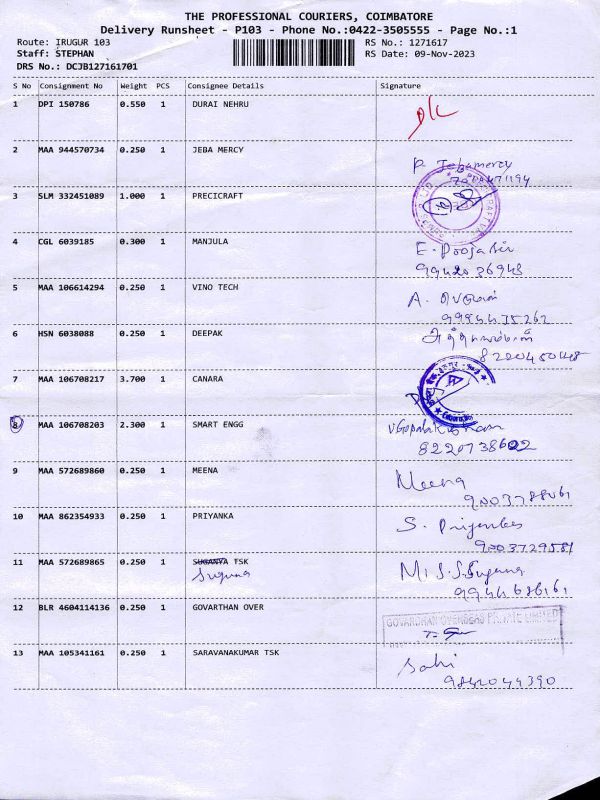 THE PROFESSIONAL COURIERS, COIMBATORE
Delivery Runsheet - P103 - Phone No.:0422-3505555 - Page No.:1
Route: IRUGUR 103 RS No.: 1271617
Staff: STEPHAN RS Date: 09-Nov-2023
DRS No.: DCJB127161701
S No Consignment No Weight PCS Consignee Details Signature
1 DPI 150786 0.550 1 DURAI NEHRU
2 MAA 944570734 0.250 1 JEBA MERCY
P. Jebamercy
3 SLM 332451089 1.000 1 PRECICRAFT
4 CGL 6039185 0.300 1 MANJULA
E. Pooja
99420 36948
5 MAA 106614294 0.250 1 VINO TECH
A.
9994435262
6 HSN 6038088 0.250 1 DEEPAK
8220450148
7 MAA 106708217 3.700 1 CANARA
8 MAA 106708203 2.300 1 SMART ENGG
V Gopalakrishnan
8220738602
9 MAA 572689860 0.250 1 MEENA Meena
10 MAA 862354933 0.250 1 PRIYANKA S. Priyanka
11 MAA 572689865 0.250 1 SUGANYA TSK
Suguna
M. S. Suguna
12 BLR 4604114136 0.250 1 GOVARTHAN OVER GOVARDHAN OVERSEAS PRIVATE LIMITED
13 MAA 105341161 0.250 1 SARAVANAKUMAR TSK
9842044390